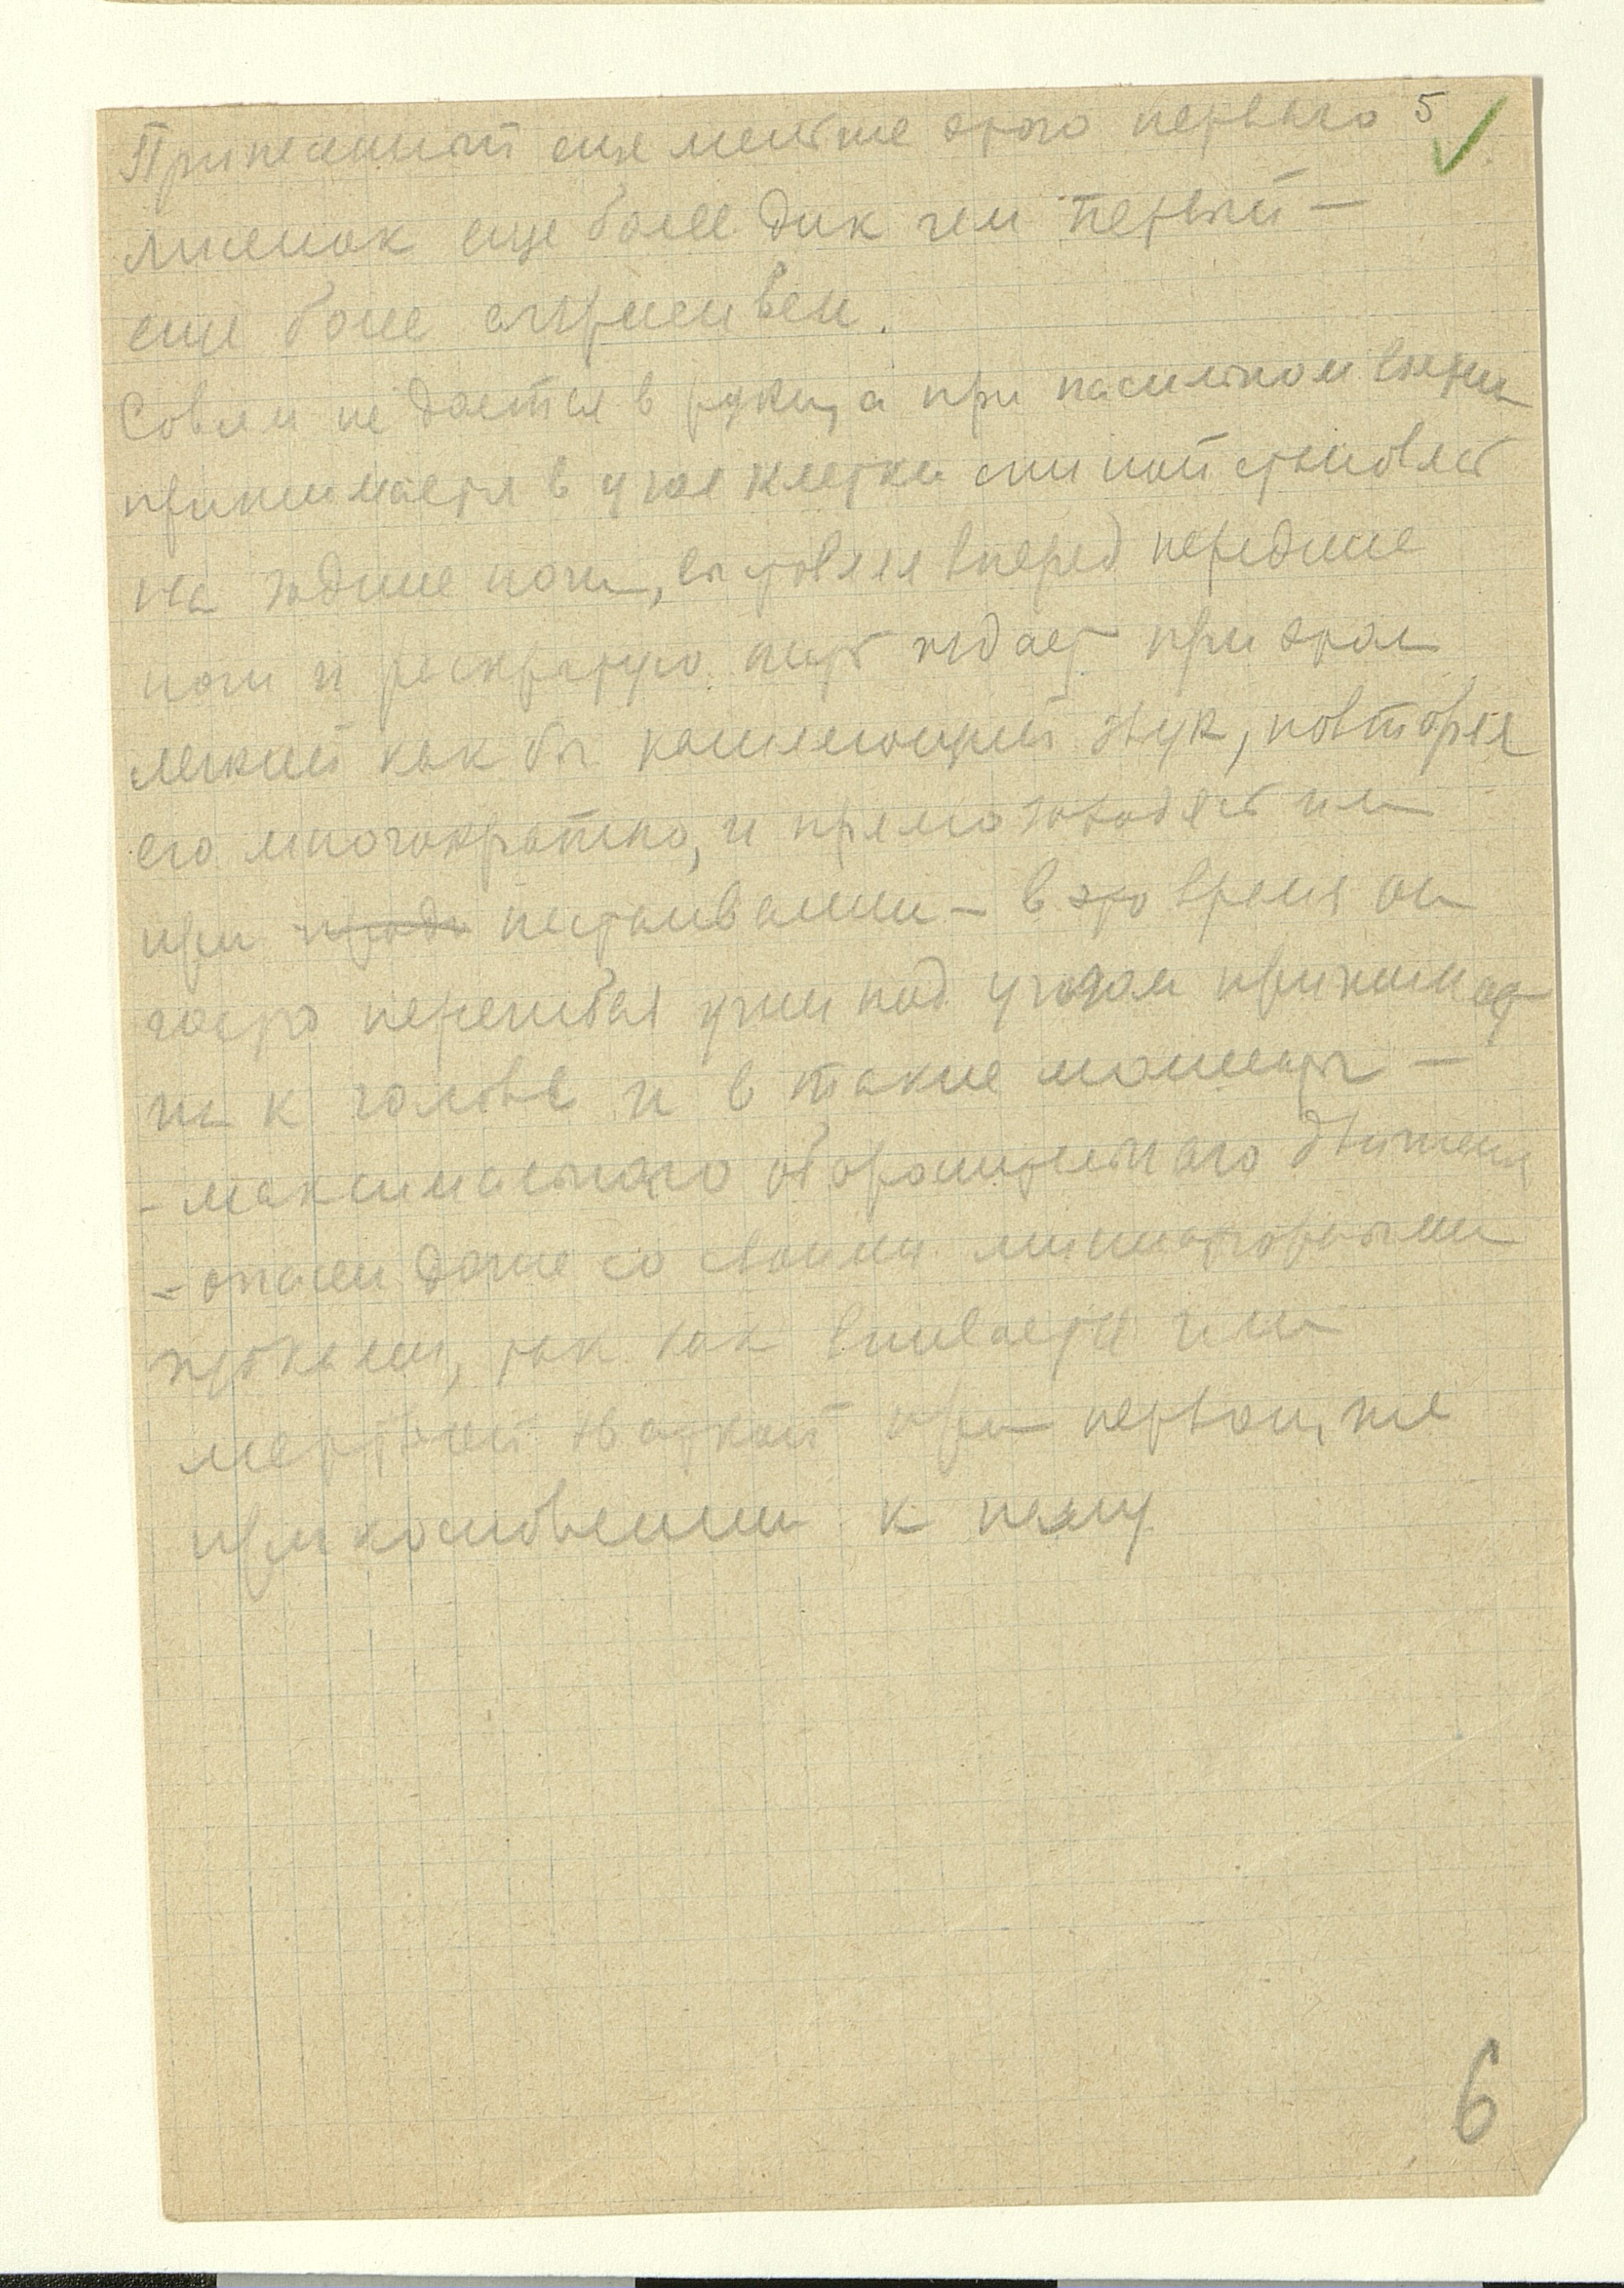 5
Принесенный еще меньше этого первого
лисенок еще более дик чем первый —
еще более агрессивен.
Совсем не дается в руки, а при насильном взятии
прижимается в угол клетки спиной становясь
на задние ноги, выставляя вперед передние
ноги и раскрытую пасть издает при этом
легкий как бы кашляющий звук, повторяя
его многократно, и прямо заходясь им
при настаивании — в это время он
часто перегибая уши под углом прижимает
их к голове и в такие моменты —
- максимального оборонительного движения
- опасен даже со своими миниатюрными
зубками, так как впивается ими
мертвой хваткой при первом же
прикосновении к нему
6